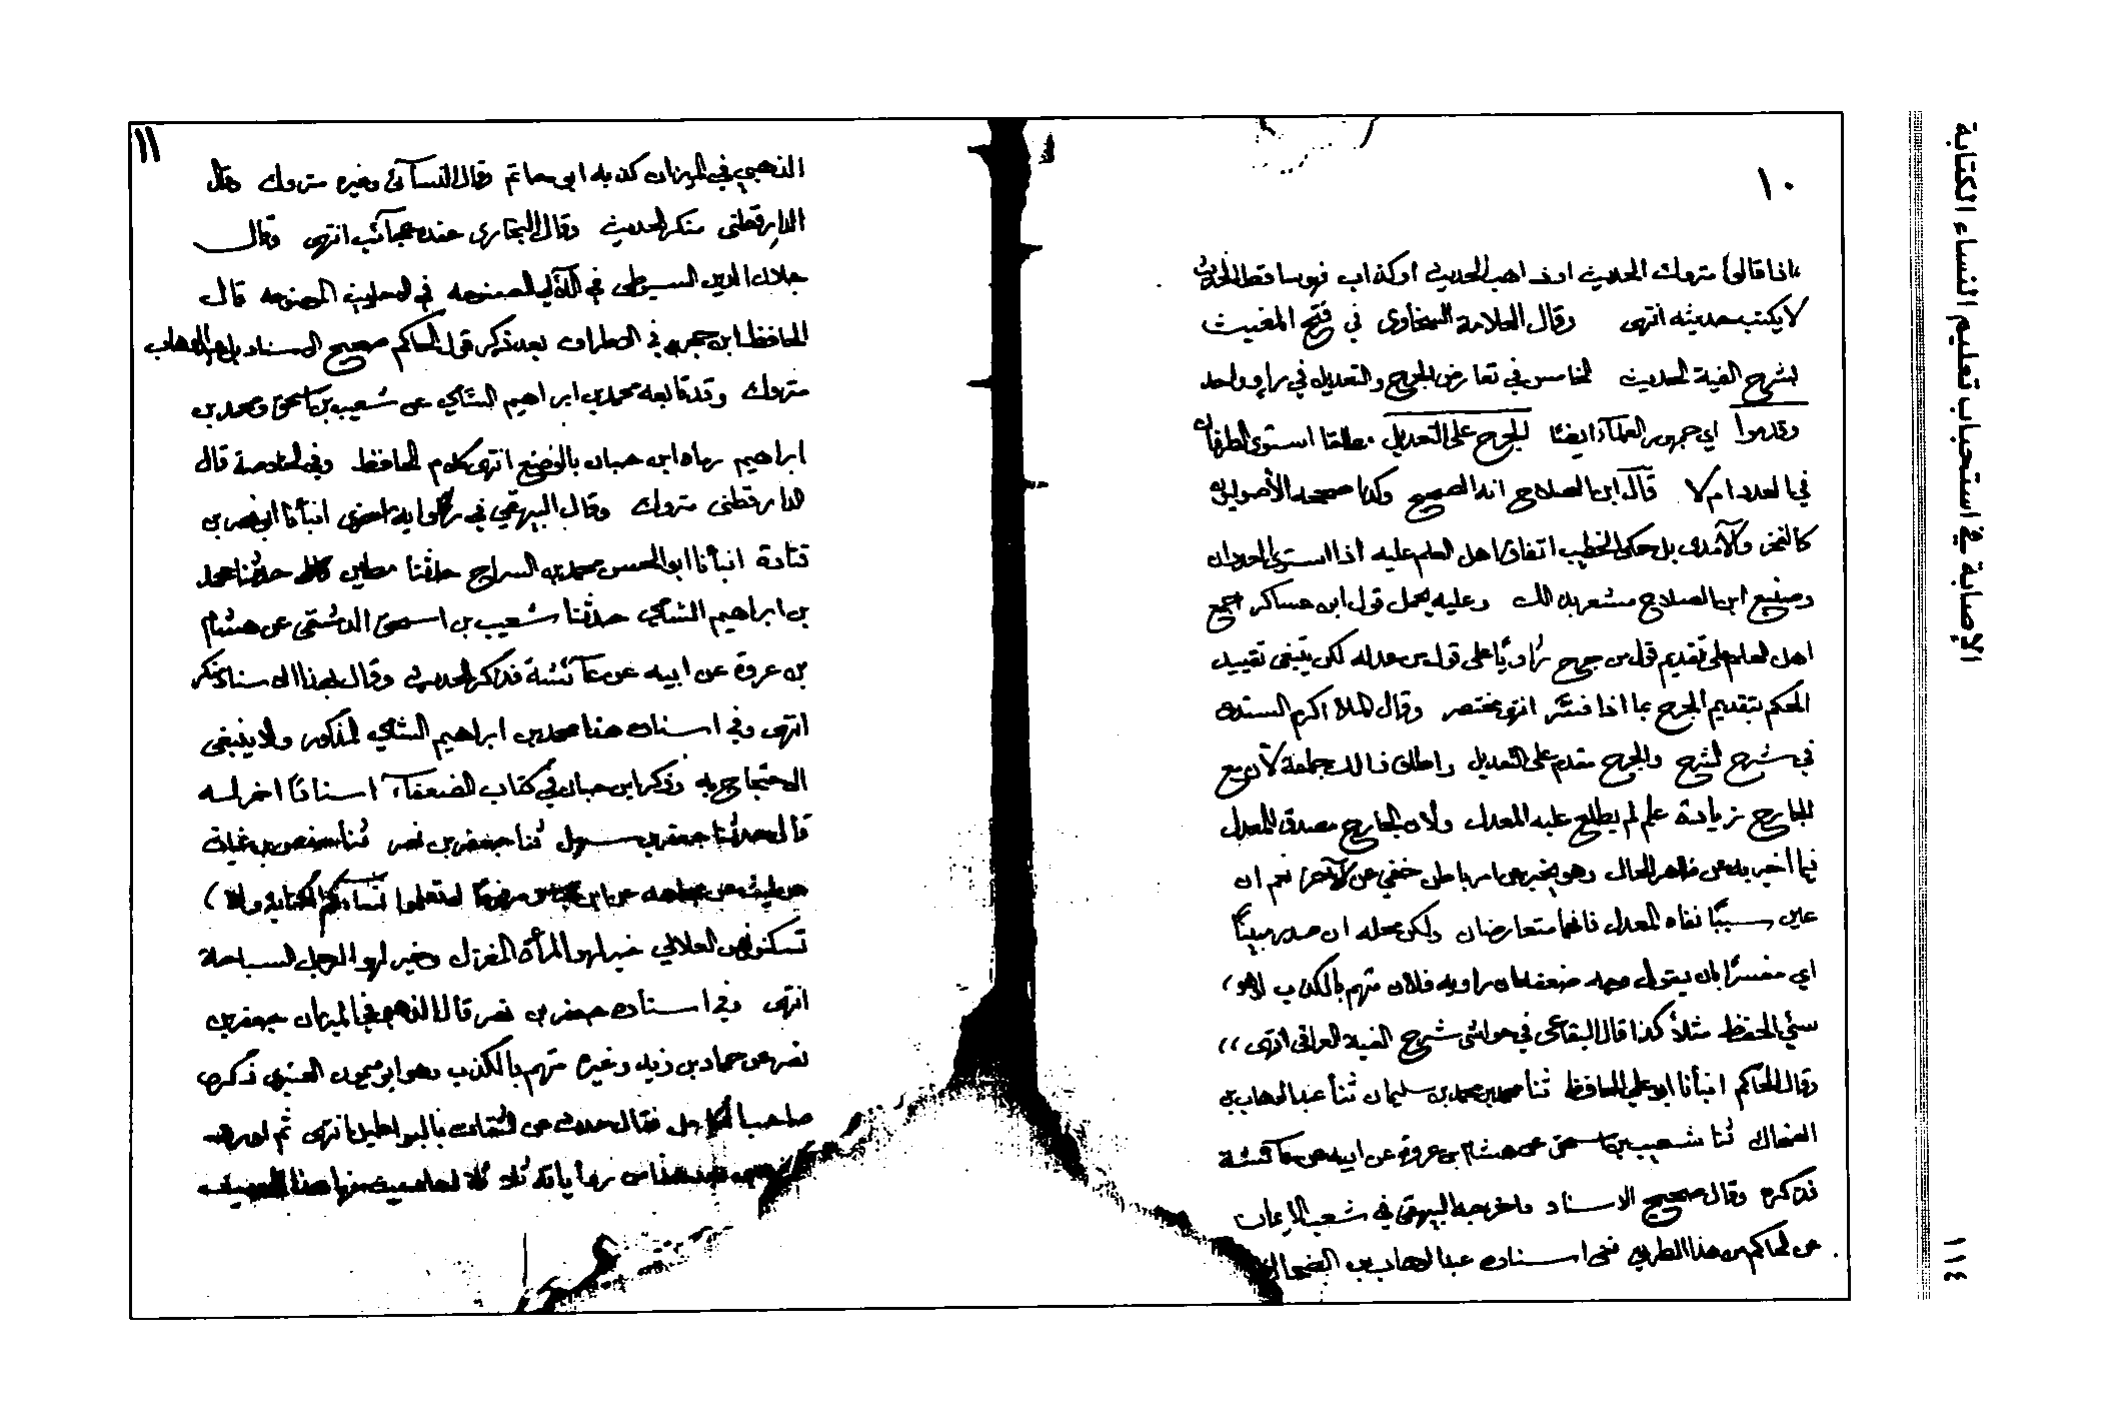 الإصابة في استحباب تعليم النساء الكتابة
١١٤
١٠
اذا قالوا متروك الحديث او ذاهب الحديث او كذاب فهو ساقط الحديث
لا يكتب حديثه انتهى وقال العلامة السخاوي في فتح المغيث
بشرح الفية الحديث الخامس في تعارض الجرح والتعديل في راو واحد
وقدموا اي جمهور العلماء ايضا الجرح على التعديل مطلقا استوى الطرفان
في العدد ام لا قال ابن الصلاح انه الصحيح وكذا صححه الأصوليون
كالفخر والآمدي بل حكى الخطيب اتفاق اهل العلم عليه اذا استوى العددان
وصنيع ابن الصلاح مشعر بذلك وعليه يحمل قول ابن عساكر اجمع
اهل العلم على تقديم قول من جرح راويا على قول من عدله لكن ينبغي تقييد
الحكم بتقديم الجرح بما اذا فسر انتهى مختصر وقال الملا اكرم السندي
في شرح الشرح والجرح مقدم على التعديل واطلق ذالك جماعة لأن مع
الجارح زيادة علم لم يطلع عليه المعدل ولأن الجارح مصدق المعدل
فيما أخبر به عن ظاهر الحال وهو يخبر عن امر باطن خفي عن الآخر نعم ان
عين سببًا نفاه المعدل فانهما متعارضان ولكن محله ان صدر مبينًا
اي مفسرًا بان يقول وجه ضعفه ان راويه فلان متهم بالكذب او هو
سئي الحفظ مثلاً كذا قال البقاعي في حواشي شرح الفية العراقي انتهى
وقال الحاكم انبأنا ابو علي الحافظ ثنا محمد بن محمد بن سليمان ثنأ عبد الوهاب بن
الضحاك ثنا شعيب بن اسحق عن هشام بن عروة عن ابيه عن عائشة
فذكره وقال صحيح الاسناد واخرجه البيهقي في شعب الإيمان
عن الحاكم من هذا الطريق ففي اسناده عبد الوهاب بن الضحاك
١١
الذهبي في الميزان كذبه ابو حاتم وقال النسآئى وغيره متروك وقال
الدارقطني منكر الحديث وقال البخاري عنده عجآئب انتهى وقال
جلال الدين السيوطي في اللآلي المصنوعه في الاحاديث الموضوعه قال
الحافظ ابن حجر في الاطراف بعد ذكر قول الحاكم صحيح الاسناد بل عبد الوهاب
متروك وقد تابعه محمد بن ابراهيم الشامي عن شعيب بن اسحق ومحمد بن
ابراهيم رماه ابن حبان بالوضع انتهى كلام الحافظ وفي الخلاصة قال
الدارقطني متروك وقال البيهقي في رواية اخرى انبأنا ابو نصر بن
قتادة انبأنا ابو الحسن محمد بن السراج حدثنا مطين حدثنا محمد
بن ابراهيم الشامي حدثنا شعيب بن اسحق الدمشقي عن هشام
بن عروة عن ابيه عن عآئشة فذكر الحديث وقال بهذا الاسناد منكر
انتهى وفي اسناده هذا محمد بن ابراهيم الشامي المذكور ولا ينبغي
الاحتجاج به وذكر ابن حبان في كتاب الضعفآء اسنادًا اخر له
قال حدثنا جعفر بن سهل ثنا جعفر بن نصر ثنأ حفص بن غياث
عن ليث عن مجاهد عن ابن عباس مرفوعًا لا تعلموا نسآءكم الكتابة ولا
تسكنوهن العلالي خير لهو المرأة المغزل وخير لهو الرجل السباحة
انتهى وفي اسناده جعفر بن نصر قال الذهبي في الميزان جعفر بن
نصر عن حماد بن زيد وغيره متهم بالكذب وهو ابو ميمون العنبري ذكره
صاحب الكامل فقال حدث عن الثقات بالبواطيل انتهى ثم اورد